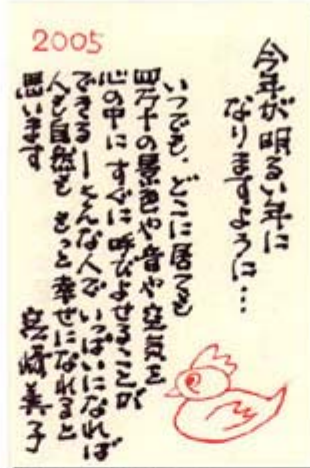 2005
今年が明るい年に
なりますように…
いつでも、どこに居ても
四万十の景色や音や空気を
心の中にすぐに呼びよせることが
できる―そんな人でいっぱいになれば
人も自然もきっと幸せになれると
思います
宮崎美子